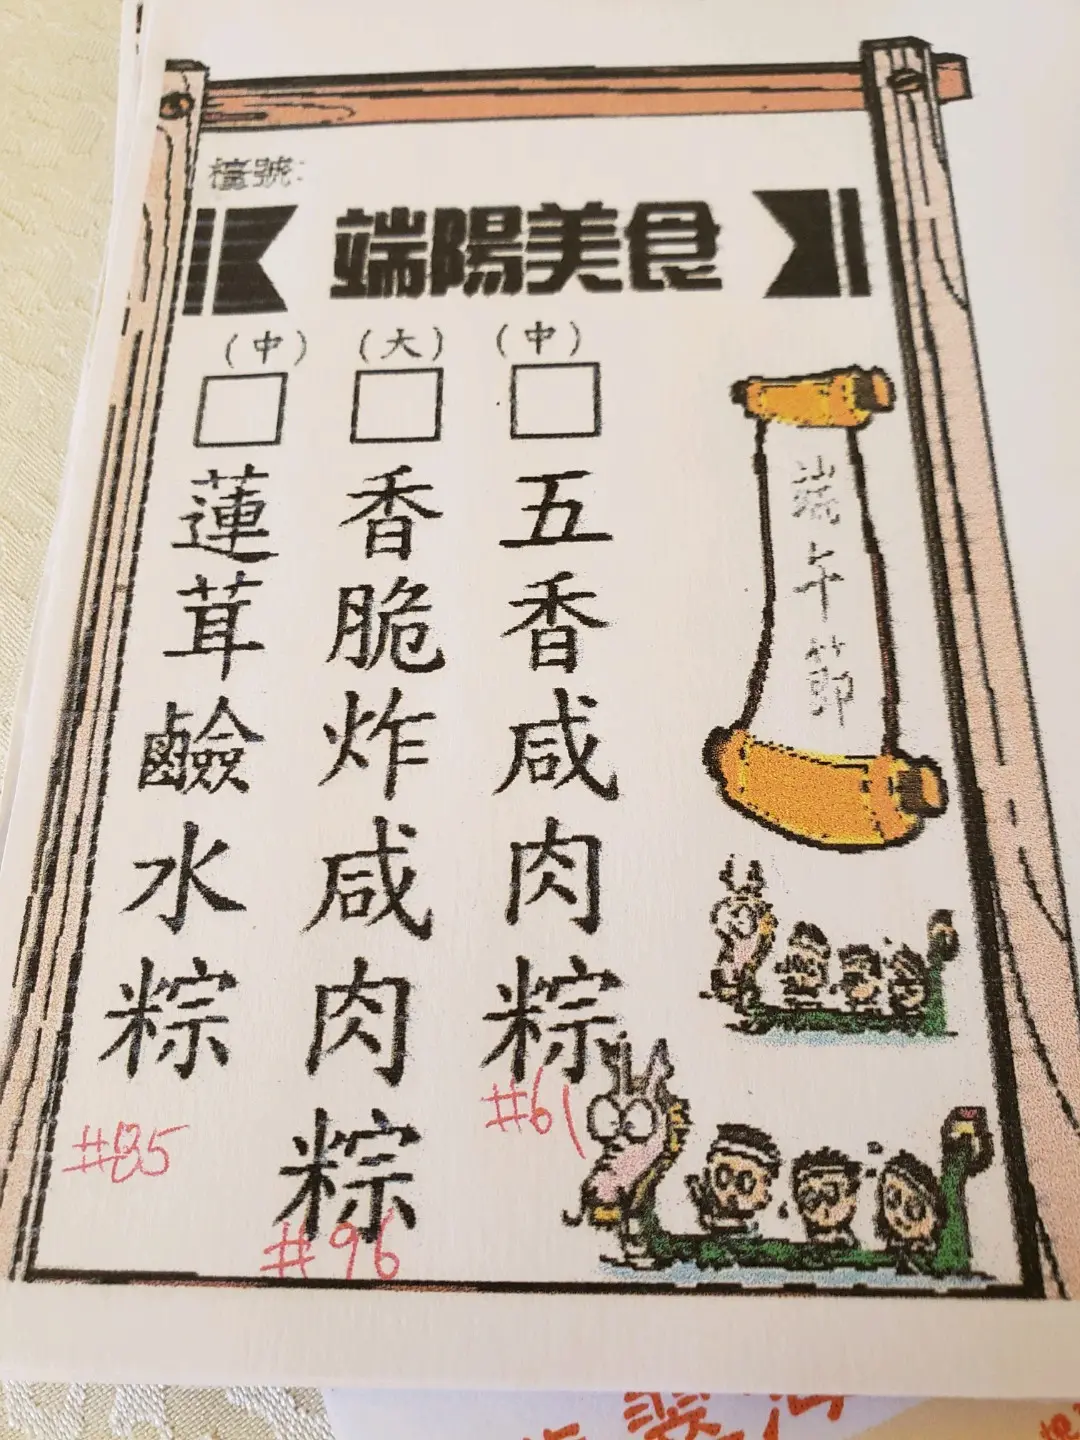 檯號:
端陽美食
(中)
五香咸肉粽
#61
(大)
香脆炸咸肉粽
#96
(中)
蓮茸鹼水粽
#85
端午節